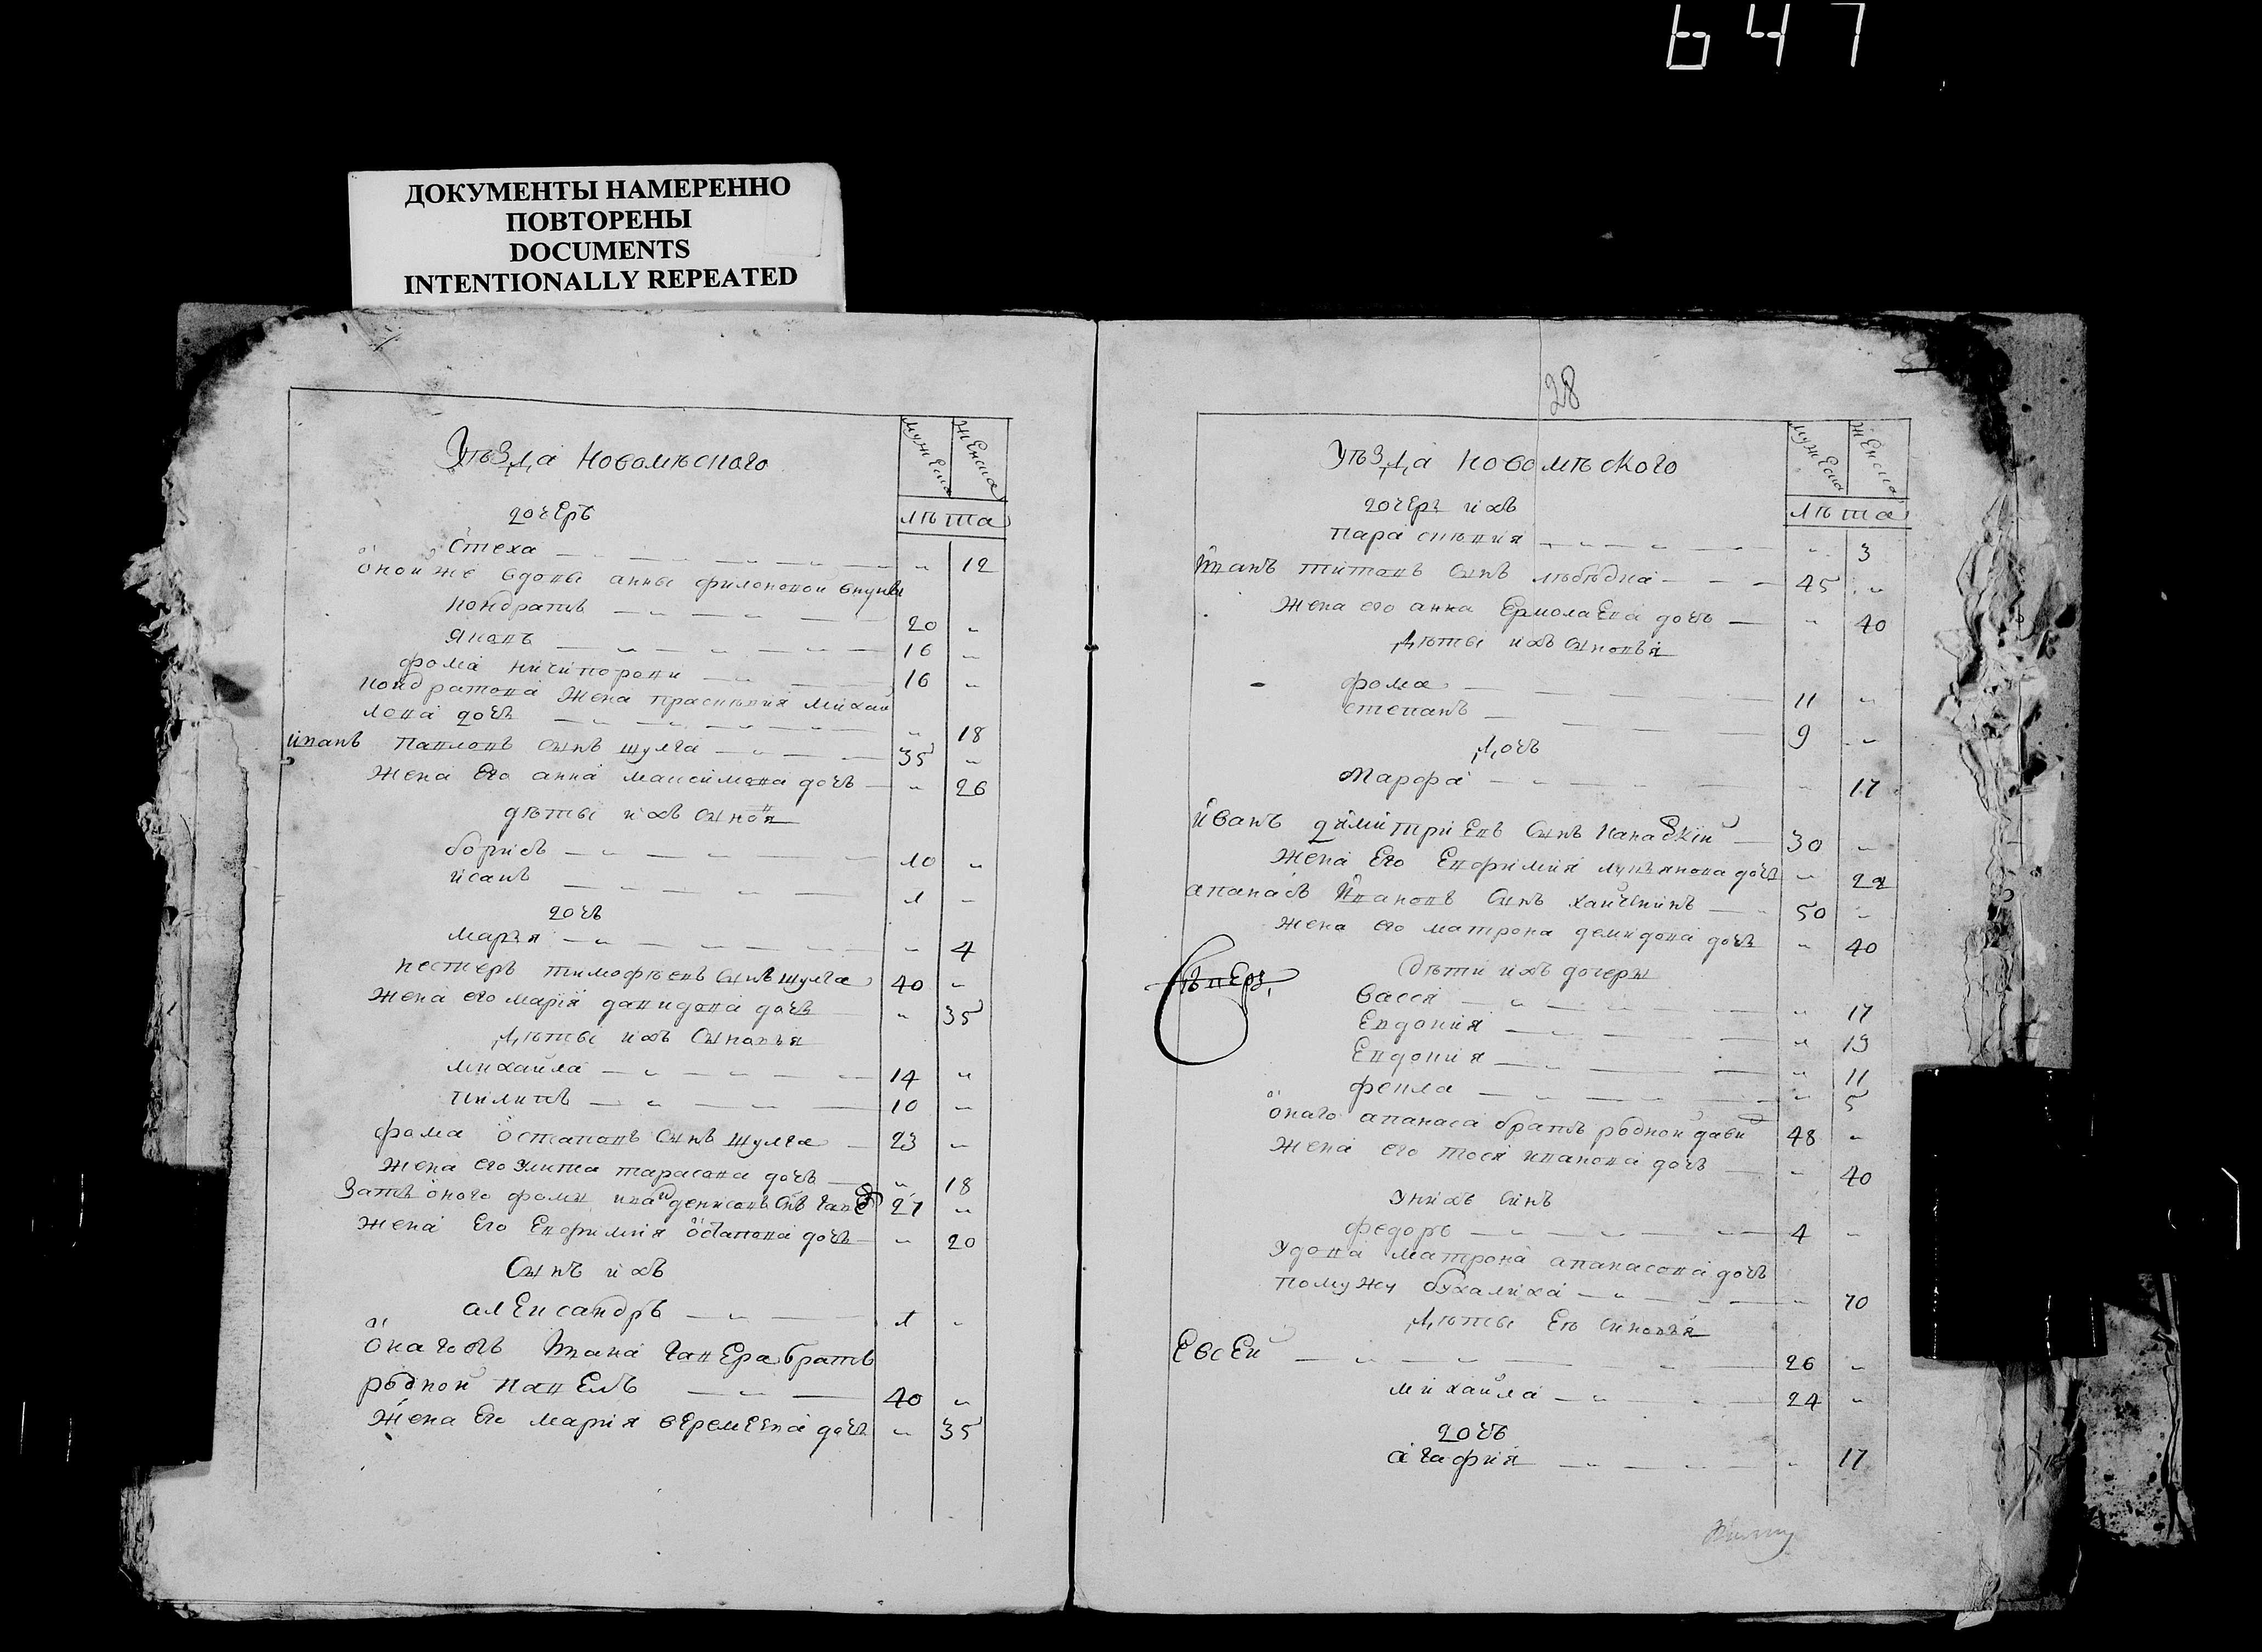 647
ДОКУМЕНТЫ НАМЕРЕННО
ПОВТОРЕНЫ
DOCUMENTS
INTENTIONALLY REPEATED
Уѣзда Новомѣского
мужеска женска
лѣта
дочеръ
Стеха 12
оной же вдовы анны филоновой внуки
Кондратъ 20
Яковъ 16
фома ничипоровы 16
кондратова жена прасковия михай
лова дочъ 18
иванъ павловъ сынъ шулга 35
жена его анна максимова дочъ 26
дѣты ихъ сыновя
борисъ 10
исакъ 1
дочъ
маръя 4
нестеръ тимофѣевъ сынъ шулга 40
жена его марія давидова дочъ 35
Дѣты ихъ сыновъя
михайла 14
пилипъ 10
фома остаповъ сынъ шулга 23
жена его улита тарасова дочъ 18
Зятъ оного фомы иван денисовъ снъ 27
жена его евфимия остапова дочъ 20
Сынъ ихъ
александръ 1
онагожъ ивана гапера братъ
родной павелъ 40
жена его мария веремеева дочъ 35
28
Уѣзда новомѣского
мужеска женска
лѣта
дочеръ ихъ
парасковия 3
Иванъ титовъ сынъ лѣбѣдка 45
жена его анна ермолаева дочъ 40
Дѣты ихъ сыновья
фома 11
степанъ 9
Дочъ
Марфа 17
Иванъ димитриевъ сынъ 30
жена его евфимия лукъянова дочъ 22
апанасъ Ивановъ сынъ 50
жена его матрона демидова дочъ 40
дѣти ихъ дочеры
васся 17
Евдокия 13
Евдокия 11
фекла 5
онаго апанаса братъ родной давид 48
жена его тося иванова дочъ 40
у нихъ синъ
федоръ 4
удова матрона апанасова дочъ
по мужу бухалиха 70
Дѣты ее синовья
Евсей 26
михайла 24
дочъ
агафия 17